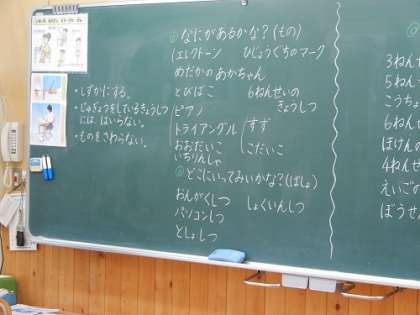 ・しずかにする。
・じゅぎょうをしているきょうしつ
には はいらない。
・ものをさわらない。
なにがあるかな？(もの)
エレクトーン ひじょうぐちのマーク
めだかのあかちゃん
とびばこ 6ねんせいの
きょうしつ
ピアノ
トライアングル すず
おおだいこ こだいこ
いちりんしゃ
どこにいってみいかな？(ばしょ)
おんがくしつ しょくいんしつ
パソコンしつ
としょしつ
3ねんせ
5ねんせ
こうち
6ねんせ
ほけんの
4ねんせ
えいごの
ぼうせ